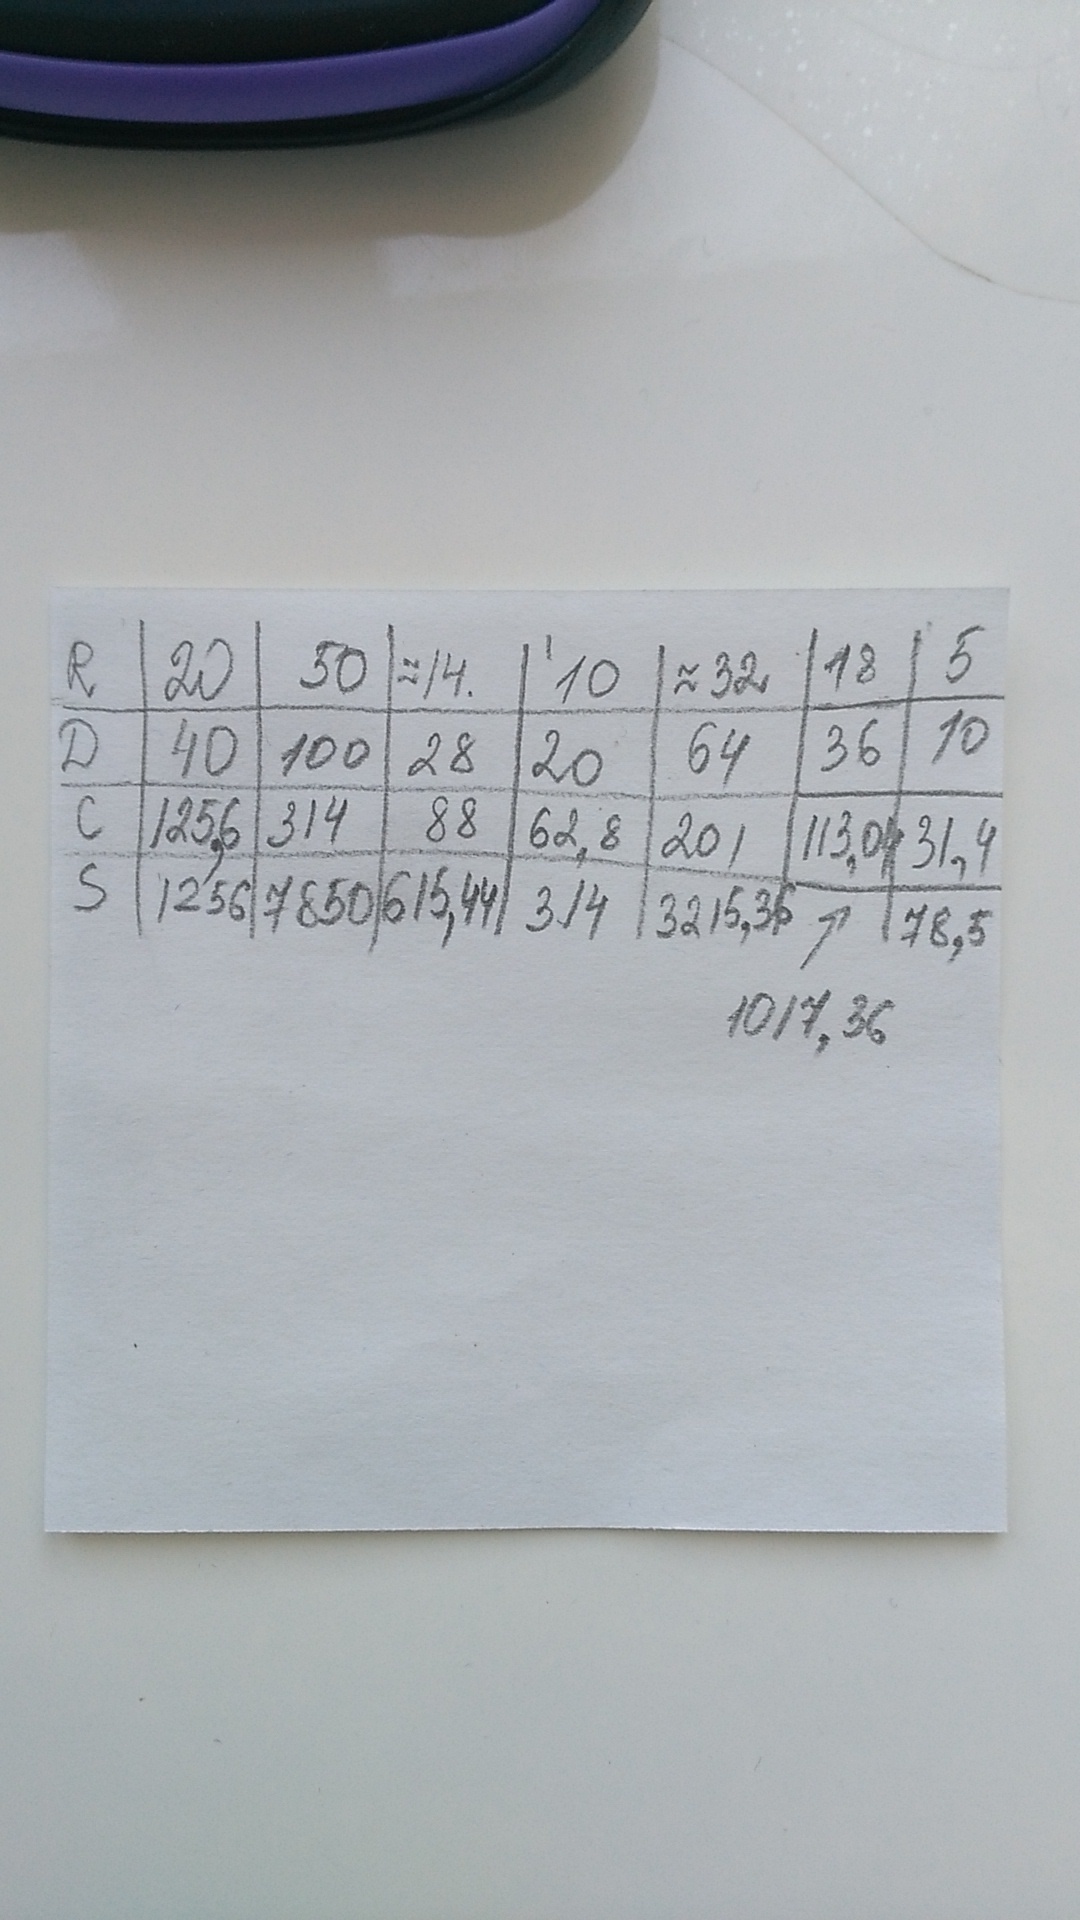 R 20 50 ≈14. 10 ≈32 18 5
D 40 100 28 20 64 36 10
C 125,6 314 88 62,8 201 113,04 31,4
S 1256 7850 615,44 314 3215,36 ↗ 78,5
1017,36